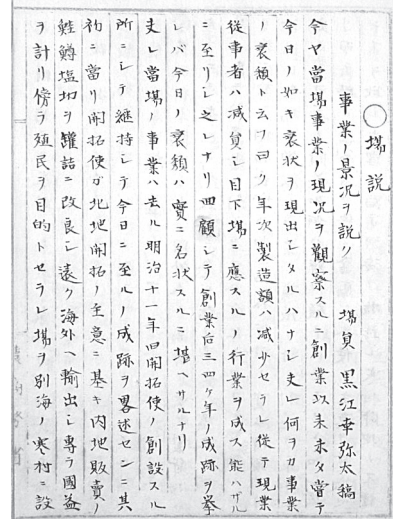 ○場説
事業ノ景况ヲ説ク　場員 黒江幸弥太稿
今ヤ當場事業ノ現况ヲ觀察スルニ創業以来未タ嘗テ
今日ノ如キ衰状ヲ現出シタルハナシ夫レ何ヲカ事業
ノ衰頽ト云フ曰ク年次製造額ハ減少セラレ従テ現業
従事者ハ减員シ目下場ニ應スルノ行業ヲ成ス能ハサル
ニ至リシ之レナリ回顧シテ創業后三四ケ年ノ成跡ヲ挙
レバ今日ノ衰頽ハ實ニ名状スルニ堪ヘサルナリ
夫レ當場ノ事業ハ去ル明治十一年旧開拓使ノ創設スル
所ニシテ継持シテ今日ニ至ルノ成跡ヲ畧述センニ其
初ニ當リ開拓使ガ北地開拓ノ主意ニ基キ内地販賣ノ
鮭鱒塩切ヲ罐詰ニ改良シ遠ク海外ヘ輸出シ專ラ國益
ヲ計リ傍ラ殖民ヲ目的トセラレ場ヲ別海ノ寒村ニ設